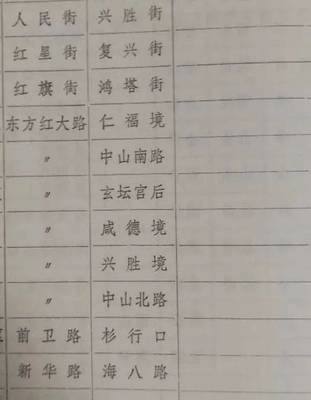 人民街 兴胜街
红星街 复兴街
红旗街 鸿塔街
东方红大路 仁福境
〃 中山南路
〃 玄坛宫后
〃 咸德境
〃 兴胜境
〃 中山北路
前卫路 杉行口
新华路 海八路